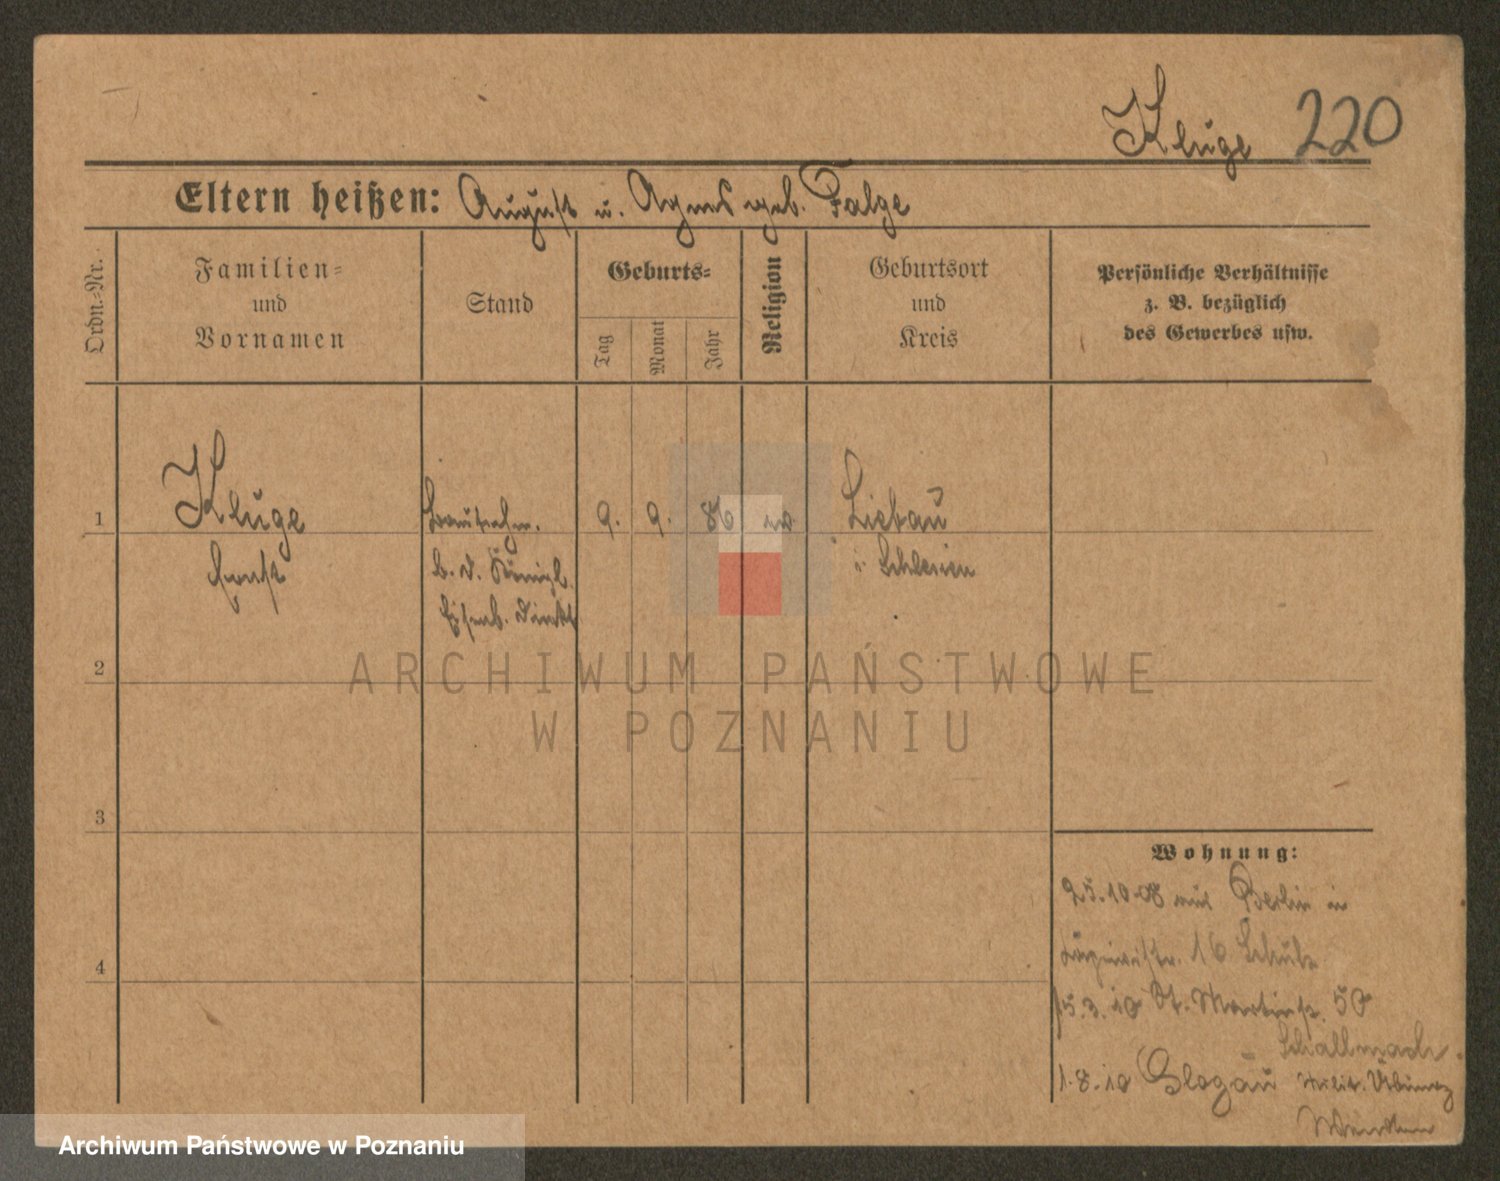 Kluge 220
Eltern heißen: August u. Agnes geb. Falge
Ordn.-Nr.
Familien-
und
Vornamen
Stand
Geburts-
Tag
Monat
Jahr
Religion
Geburtsort
und
Kreis
Persönliche Verhältnisse
z. B. bezüglich
des Gewerbes usw.
1
Kluge
Ernst
Bautechn.
b. d. Königl.
Eisenb. Direkt
9. 9. 86
Liebau
i. Schlesien
2
3
4
Wohnung:
25.10.08 aus Berlin in
16 Schulz
15.3.10 St. Martinstr. 50
1.8.10 Glogau Milit. Übung
ARCHIWUM PAŃSTWOWE
W POZNANIU
Archiwum Państwowe w Poznaniu